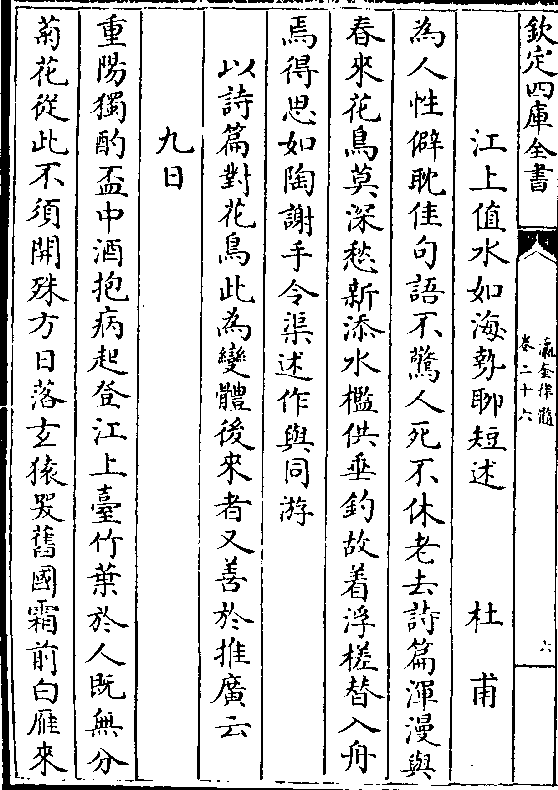 欽定四庫全書
瀛奎律髓
卷二十六
六
江上值水如海勢聊短述 杜甫
為人性僻耽佳句語不驚人死不休老去詩篇渾漫與
春來花鳥莫深愁新添水檻供垂釣故着浮槎替入舟
焉得思如陶謝手令渠述作與同游
以詩篇對花鳥此為變體後來者又善於推廣云
九日
重陽獨酌盃中酒抱病起登江上臺竹葉於人既無分
菊花從此不須開殊方日落玄猿哭舊國霜前白雁來